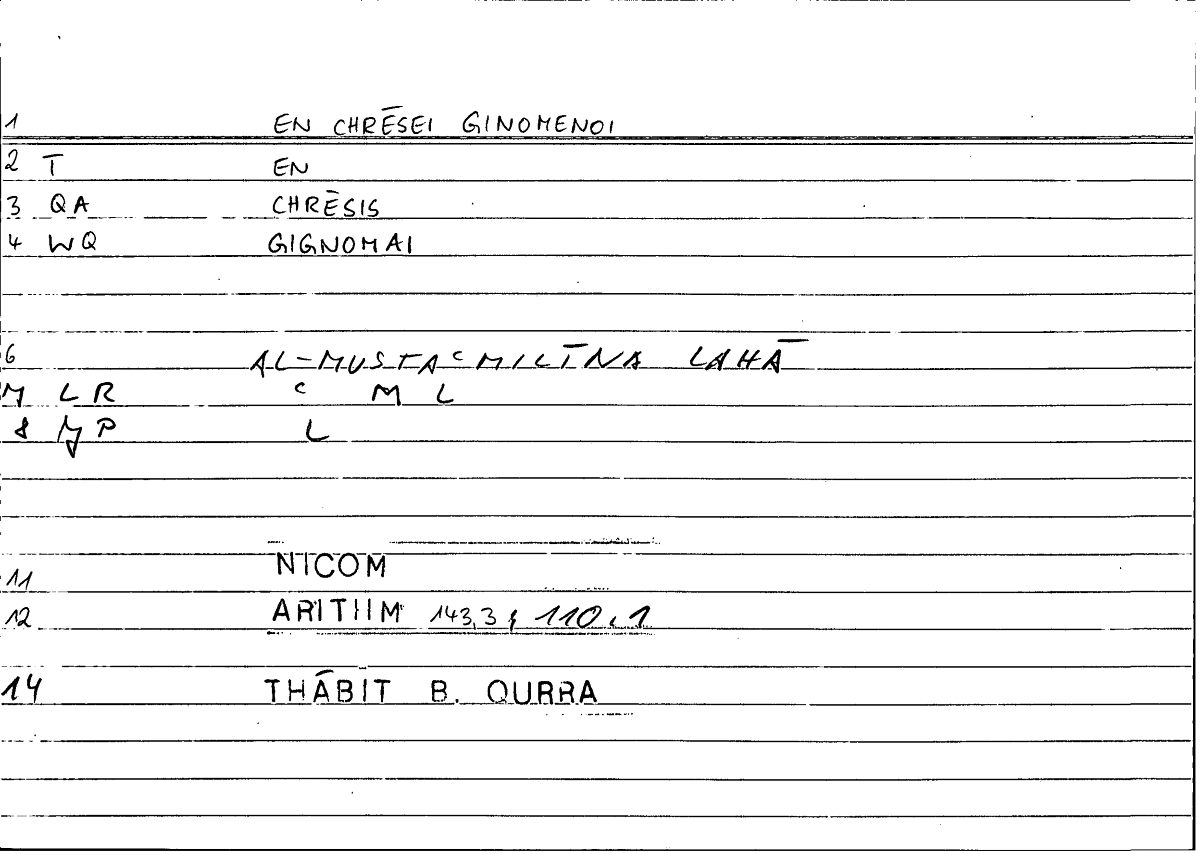 1 EN CHRĒSEI GINOMENOI
2 T EN
3 QA CHRĒSIS
4 WQ GIGNOMAI
6 AL-MUSTAᶜMILĪNA LAHĀ
LR ᶜ M L
8 P L
11 NICOM
12 ARITHM 143,3; 110,1
14 THĀBIT B. QURRA